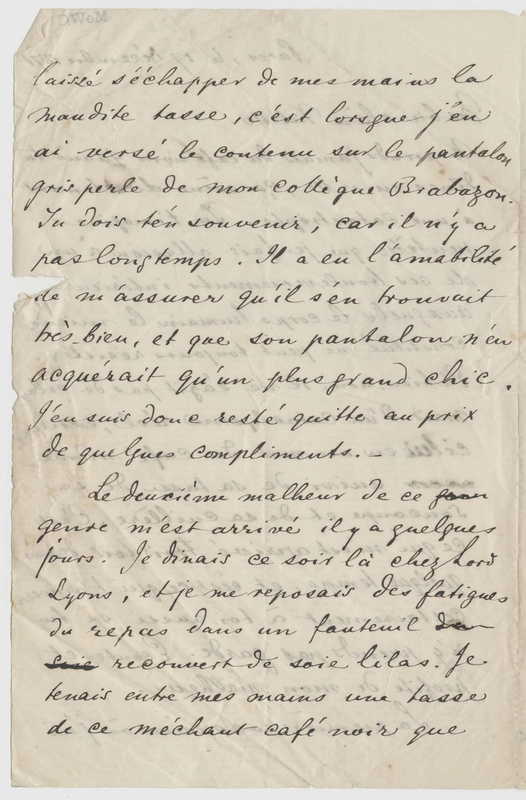 laissé s'échapper de mes mains la
maudite tasse, c'est lorsque j'en
ai versé le contenu sur le pantalon
gris perle de mon collègue Brabazon.
Tu dois t'en souvenir, car il n'y a
pas longtemps. Il a eu l'amabilité
de m'assurer qu'il s'en trouvait
très-bien, et que son pantalon n'en
acquérait qu'un plus grand chic.
J'en suis donc resté quitte au prix
de quelques compliments. –
Le deuxième malheur de ce
genre m'est arrivé il y a quelques
jours. Je dinais ce soir là chez Lord
Lyons, et je me reposais des fatigues
du repas dans un fauteuil
recouvert de soie lilas. Je
tenais entre mes mains une tasse
de ce méchant café noir que